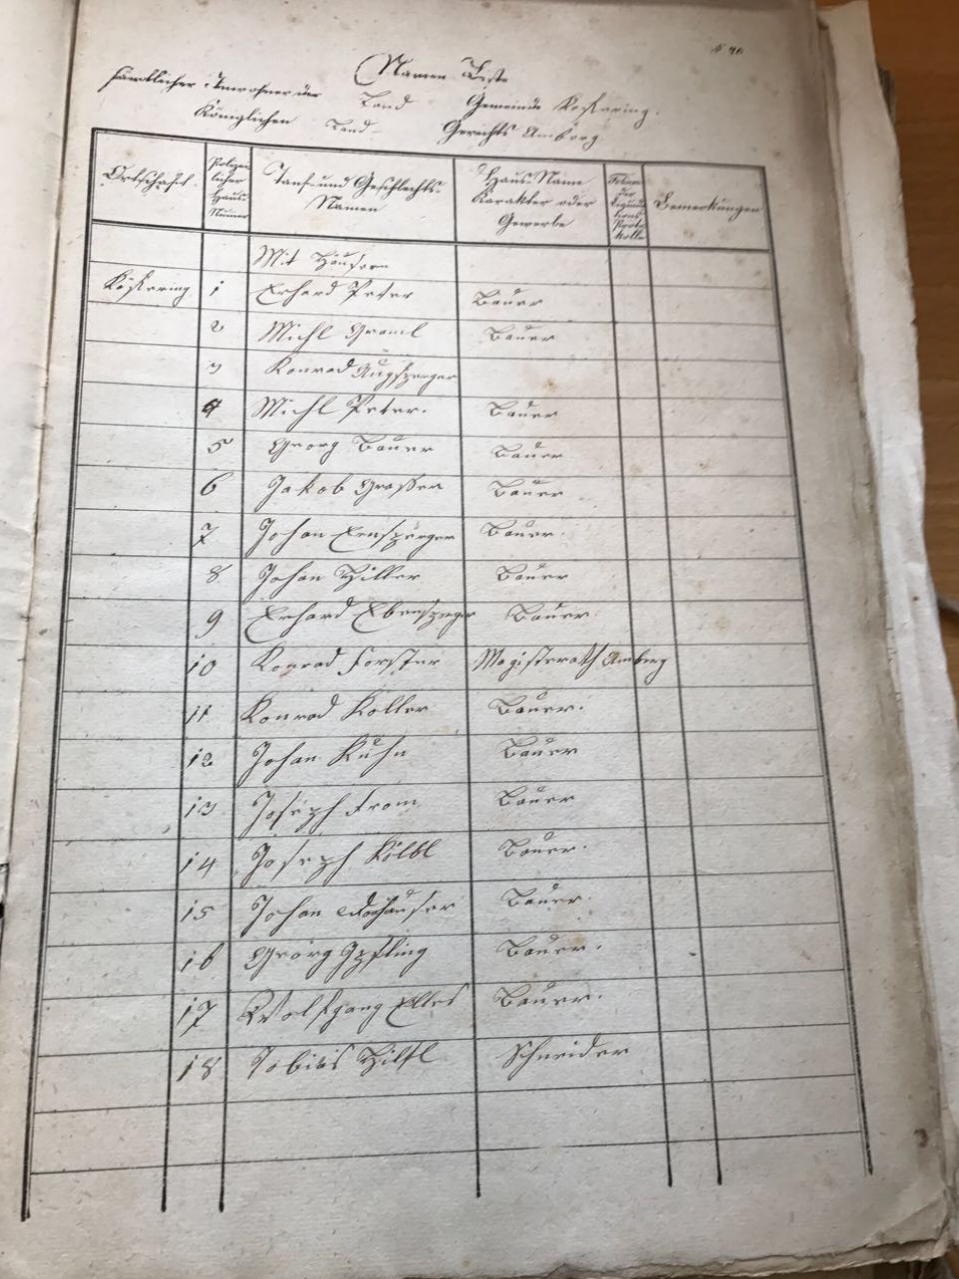 Namen Liste
sämtlicher Inwohner der Land Gemeinde Kökering.
Königlichen Land- Gerichts Amberg
Ortschaft. Polizeylicher Haus Numer Tauf- und Geschlechts- Namen Haus-Name Karakter oder Gewerbe Folium der Liquidations Protokolle Bemerkungen
Mit Häusern
Kökering 1 Erhard Peter Bauer
2 Michl Graml Bauer
3 Konrad Augsperger
4 Michl Peter. Bauer
5 Georg Bauer Bauer
6 Jakob Grasser Bauer
7 Johan Ernsperger Bauer.
8 Johan Hiller Bauer
9 Erhard Ebensperger Bauer.
10 Konrad Forster Magisterath Amberg
11 Konrad Koller Bauer.
12 Johan Kuhn Bauer
13 Joseph From Bauer
14 Joseph Kölbl Bauer.
15 Johan Bauer.
16 Georg Bauer.
17 Wolfgang Elles Bauer.
18 Tobias Hiltl Schneider